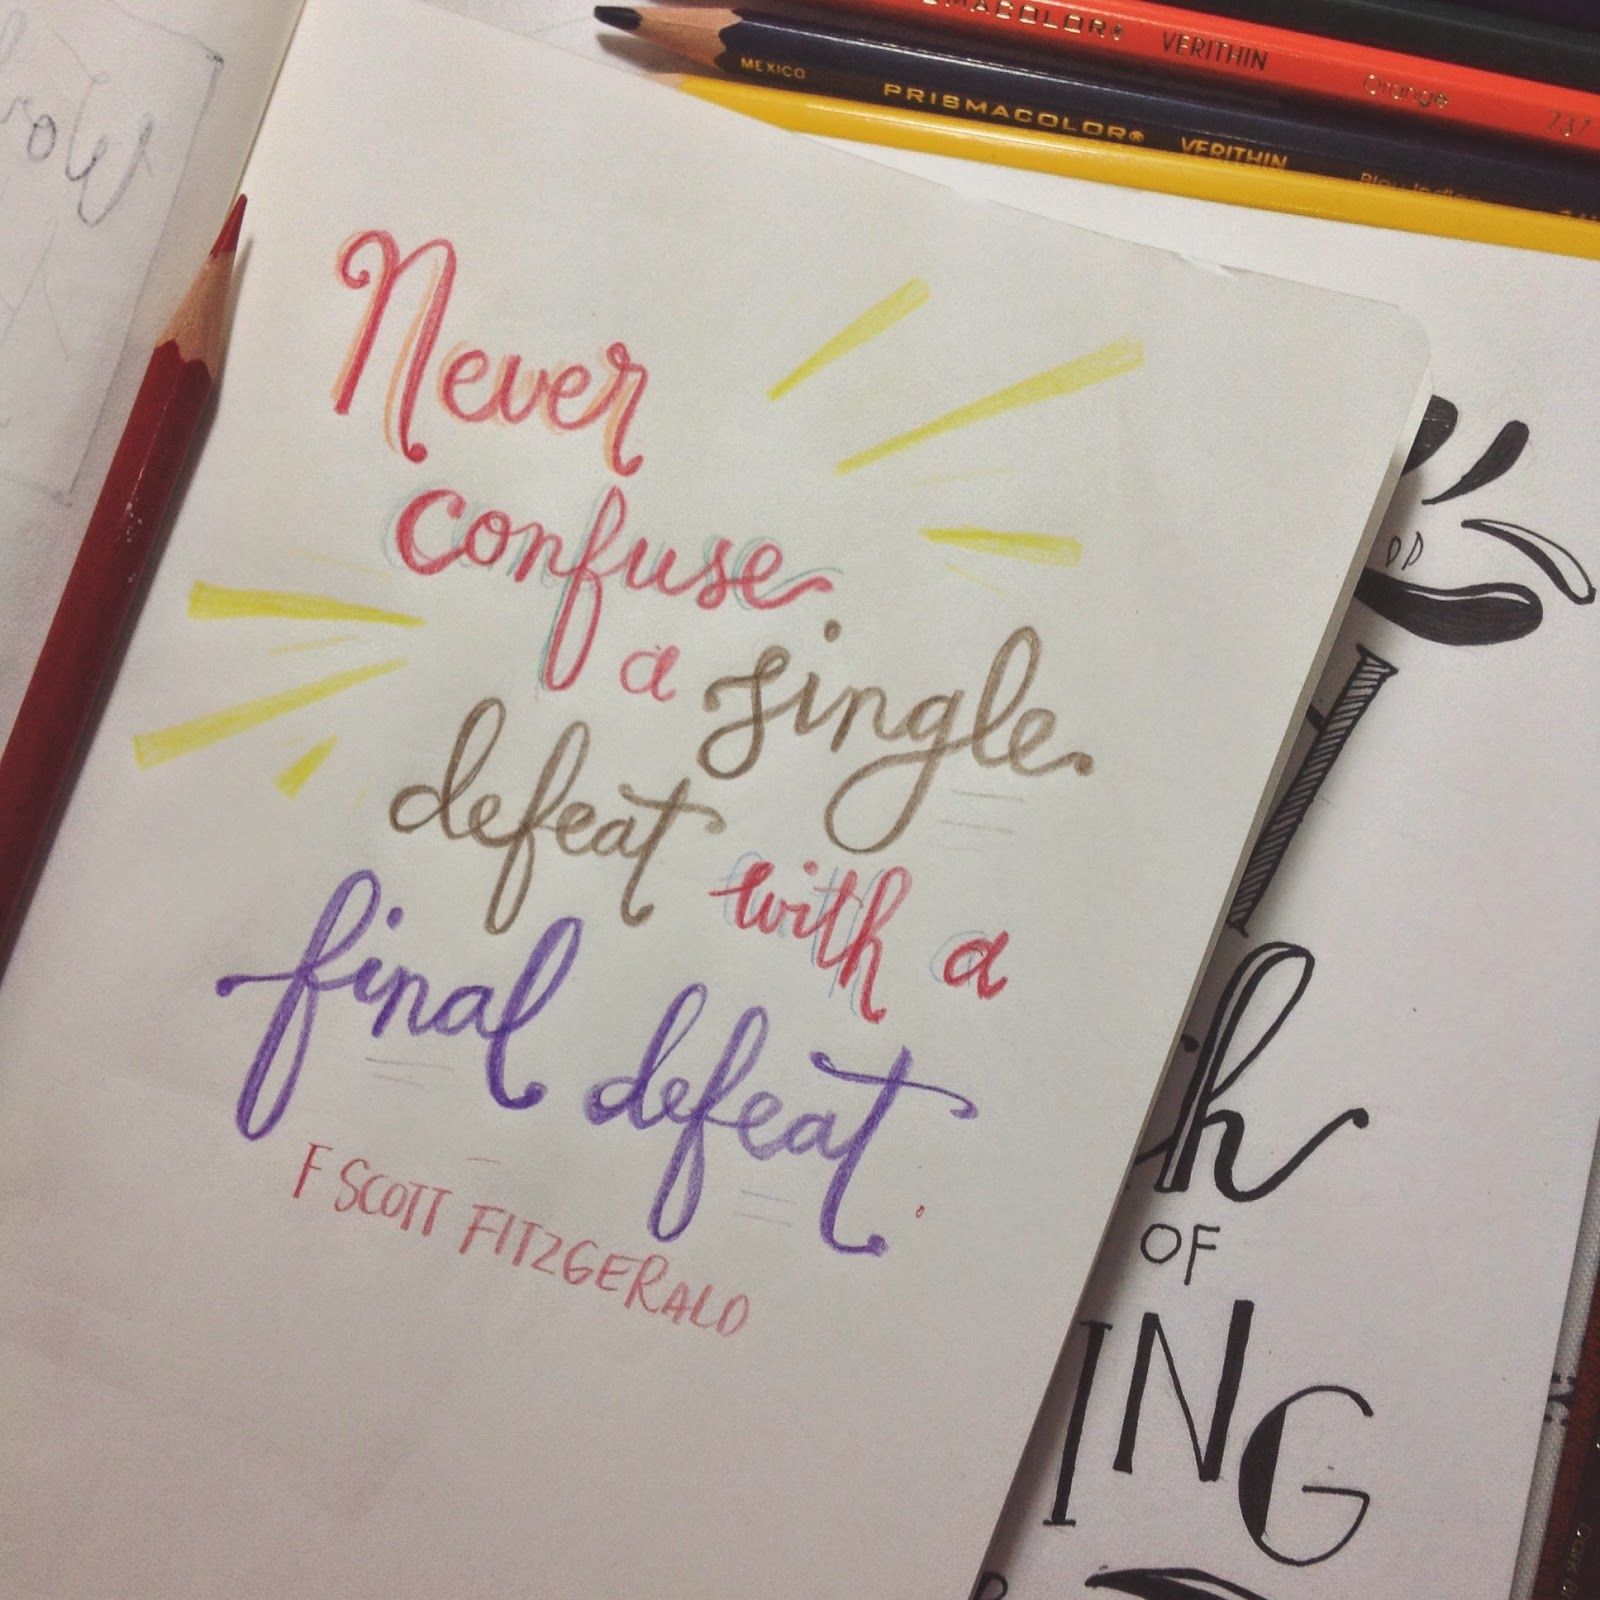 PRISMACOLOR® VERITHIN Orange 737
MEXICO PRISMACOLOR® VERITHIN
Never
confuse
a single
defeat with a
final defeat.
F SCOTT FITZGERALD
OF
ING